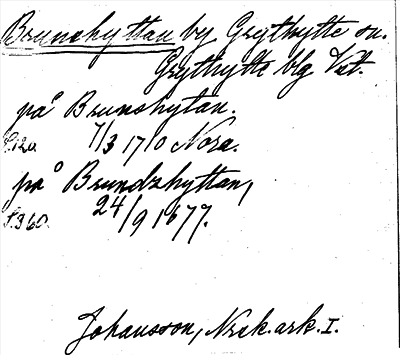 Brunshyttan by Grythytte sn.
Grythytte blg Vstl.
på Brunshytan.
S.120. 7/3 1710 Nora.
på Brundzhyttan,
S.360. 24/9 1677.
Johansson, Nrsk.ark. I.